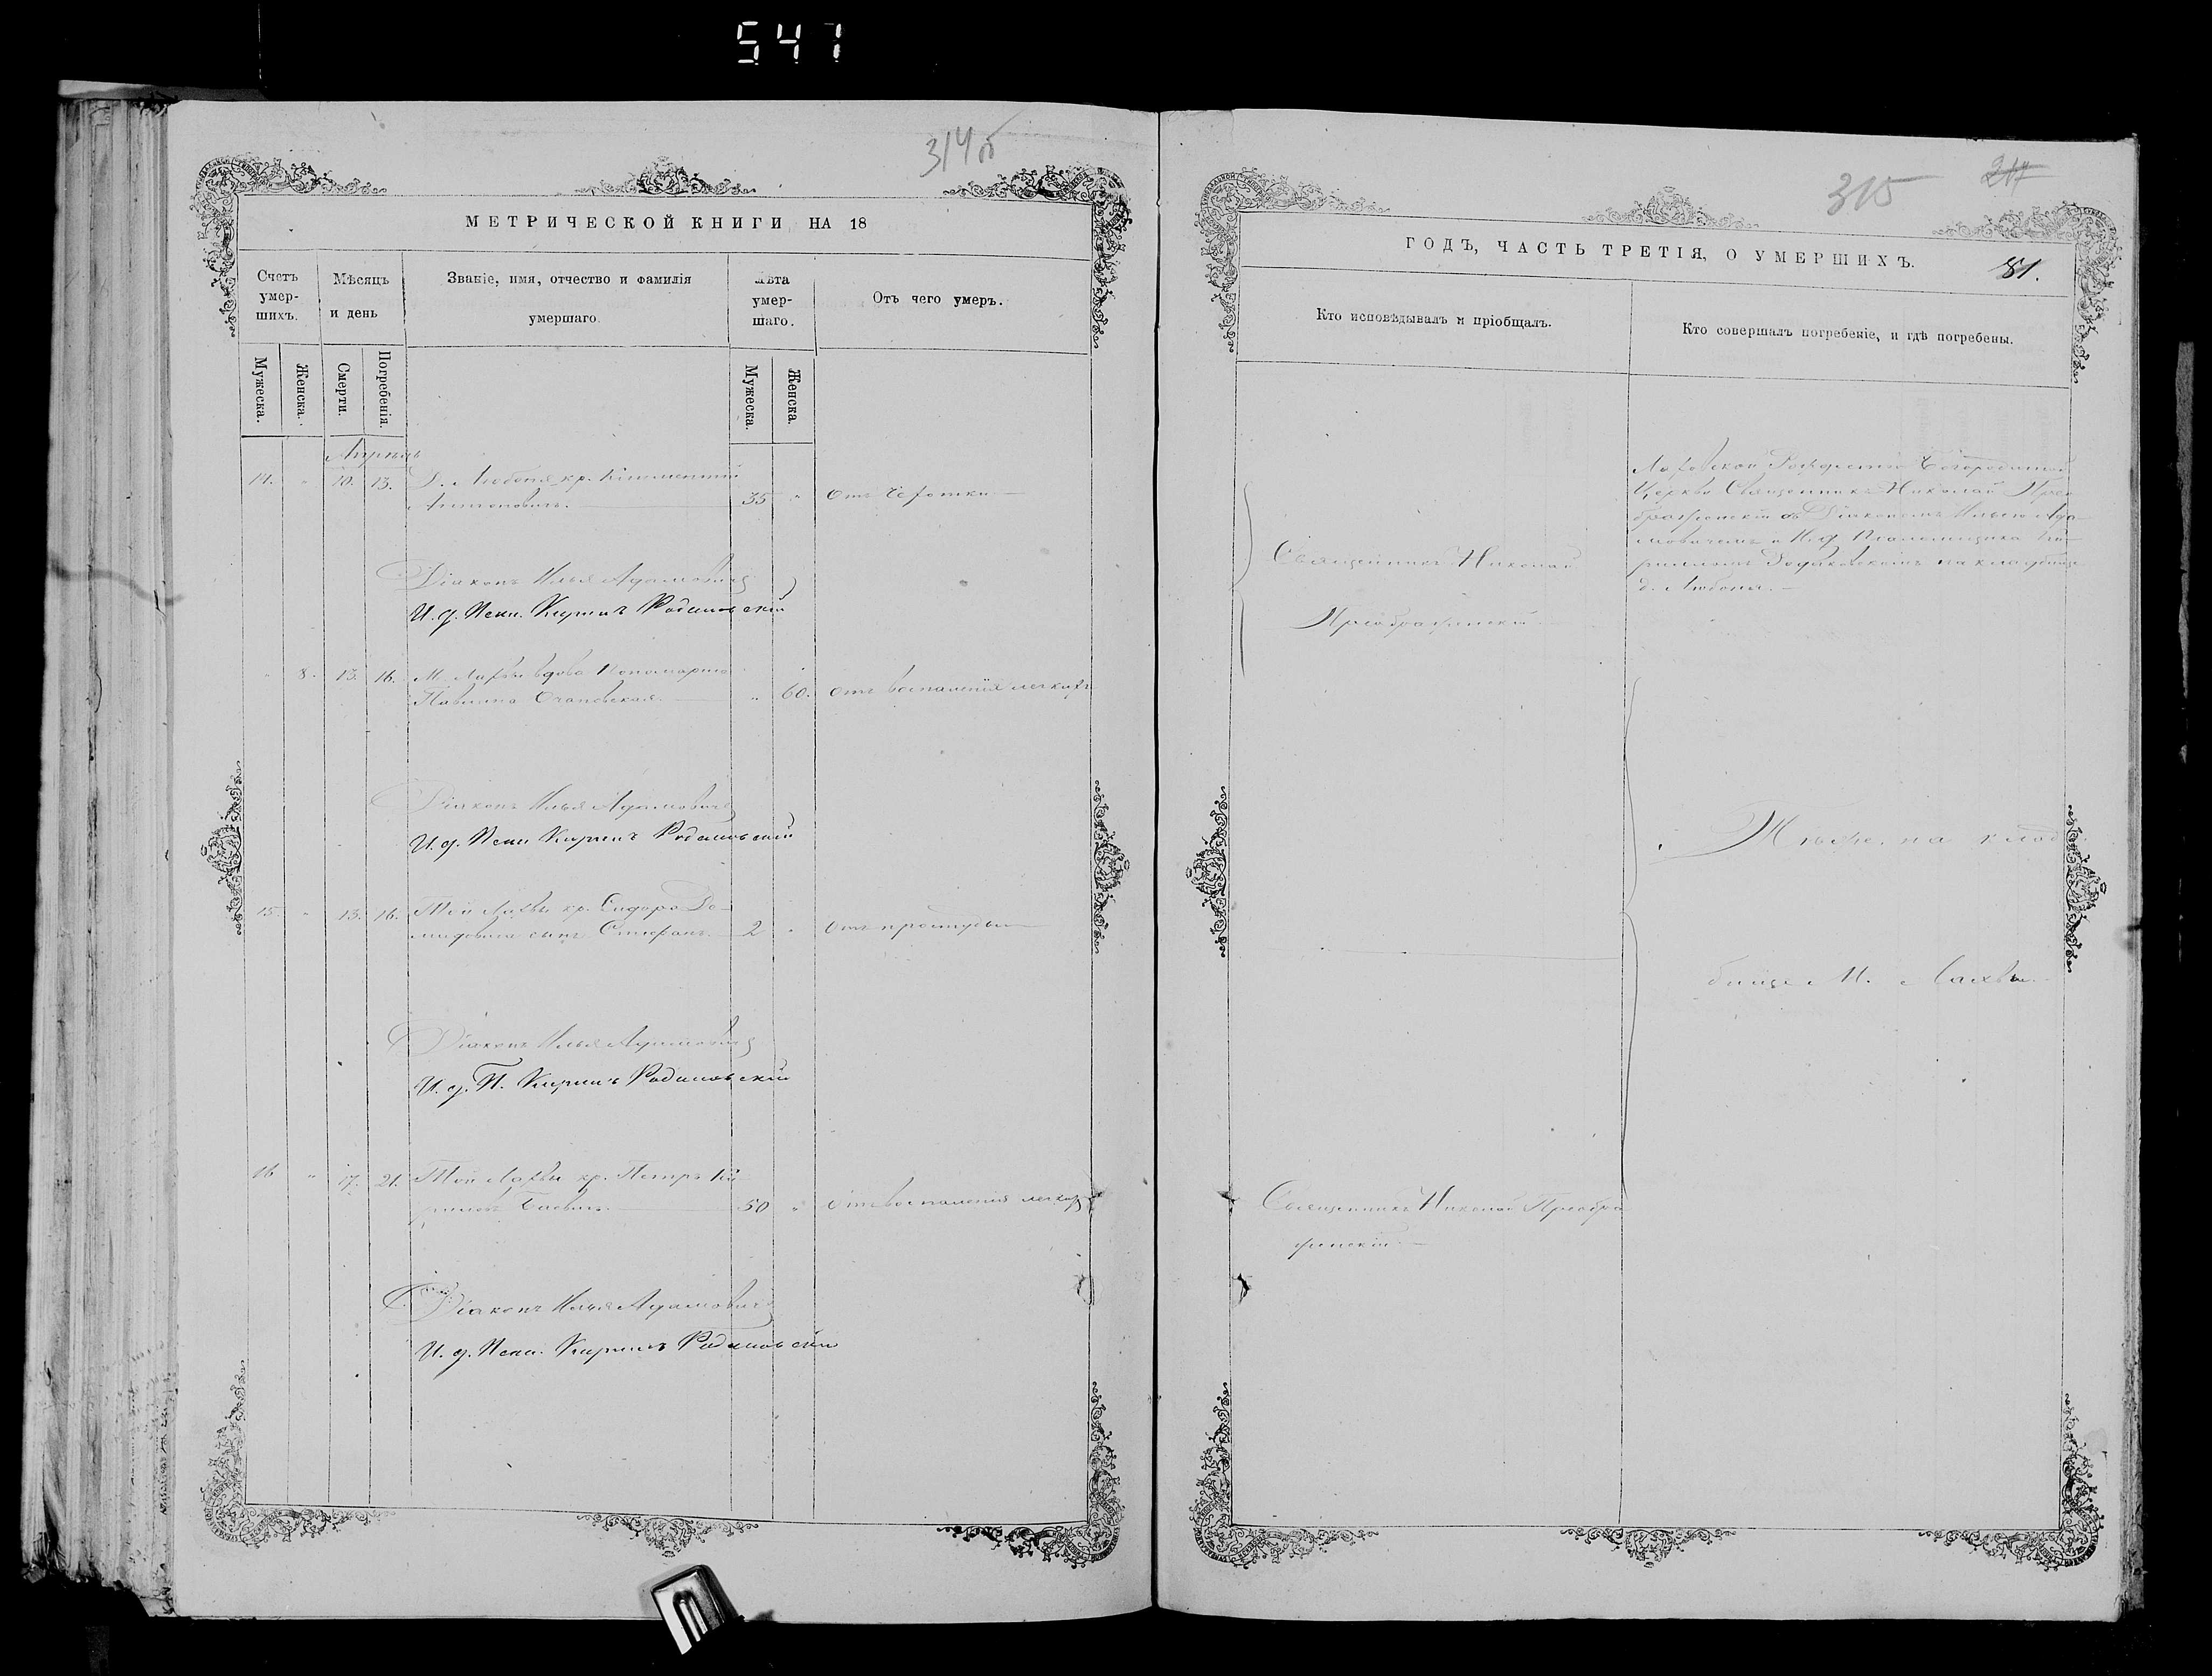 547
314 об
МЕТРИЧЕСКОЙ КНИГИ НА 18
Счетъ умер-шихъ.
Мѣсяцъ и день
Званіе, имя, отчество и фамилія умершаго.
Лѣта умер-шаго.
Отъ чего умеръ.
Мужеска.
Женска.
Смерти.
Погребенія.
Мужеска.
Женска.
Апрѣль
14. " 10. 13. Д. Любоня кр. Климентій
Антоновичъ. 35 " Отъ чахотки
Діаконъ Илья Адамовичъ
И. д. Псал. Кирилъ
" 8. 13. 16. М. Лахвы вдова Пономарша
Павлина " 60. Отъ воспаленія легкихъ
Діаконъ Илья Адамовичъ
И. д. Псал. Кирилъ
15. " 13. 16. Той Лахвы кр. Сидора До-
мидовича сынъ Стефанъ. 2 " Отъ простуды
Діаконъ Илья Адамовичъ
И. д. П. Кирилъ
16 " 17. 21. Той Лахвы кр. Петръ Ки-
риловъ 50 " Отъ воспаленія легких
Діаконъ Илья Адамовичъ
И. д. Псал. Кирилъ
315
ГОДЪ, ЧАСТЬ ТРЕТІЯ, О УМЕРШИХЪ.
81.
Кто исповѣдывалъ и пріобщалъ.
Кто совершалъ погребеніе, и гдѣ погребены.
Священникъ Николай
Преображенскій
Лаховской Рождество Богородичной
Церкви Священникъ Николай Прео
браженскій съ Діакономъ Ильею Ада-
мовичемъ и И. д. Псаломщика Ки-
рилломъ на кладбищѣ
д. Любоня.
Тѣже, на клад
бищѣ М. Лахвы.
Священникъ Николай Преобра
женскій